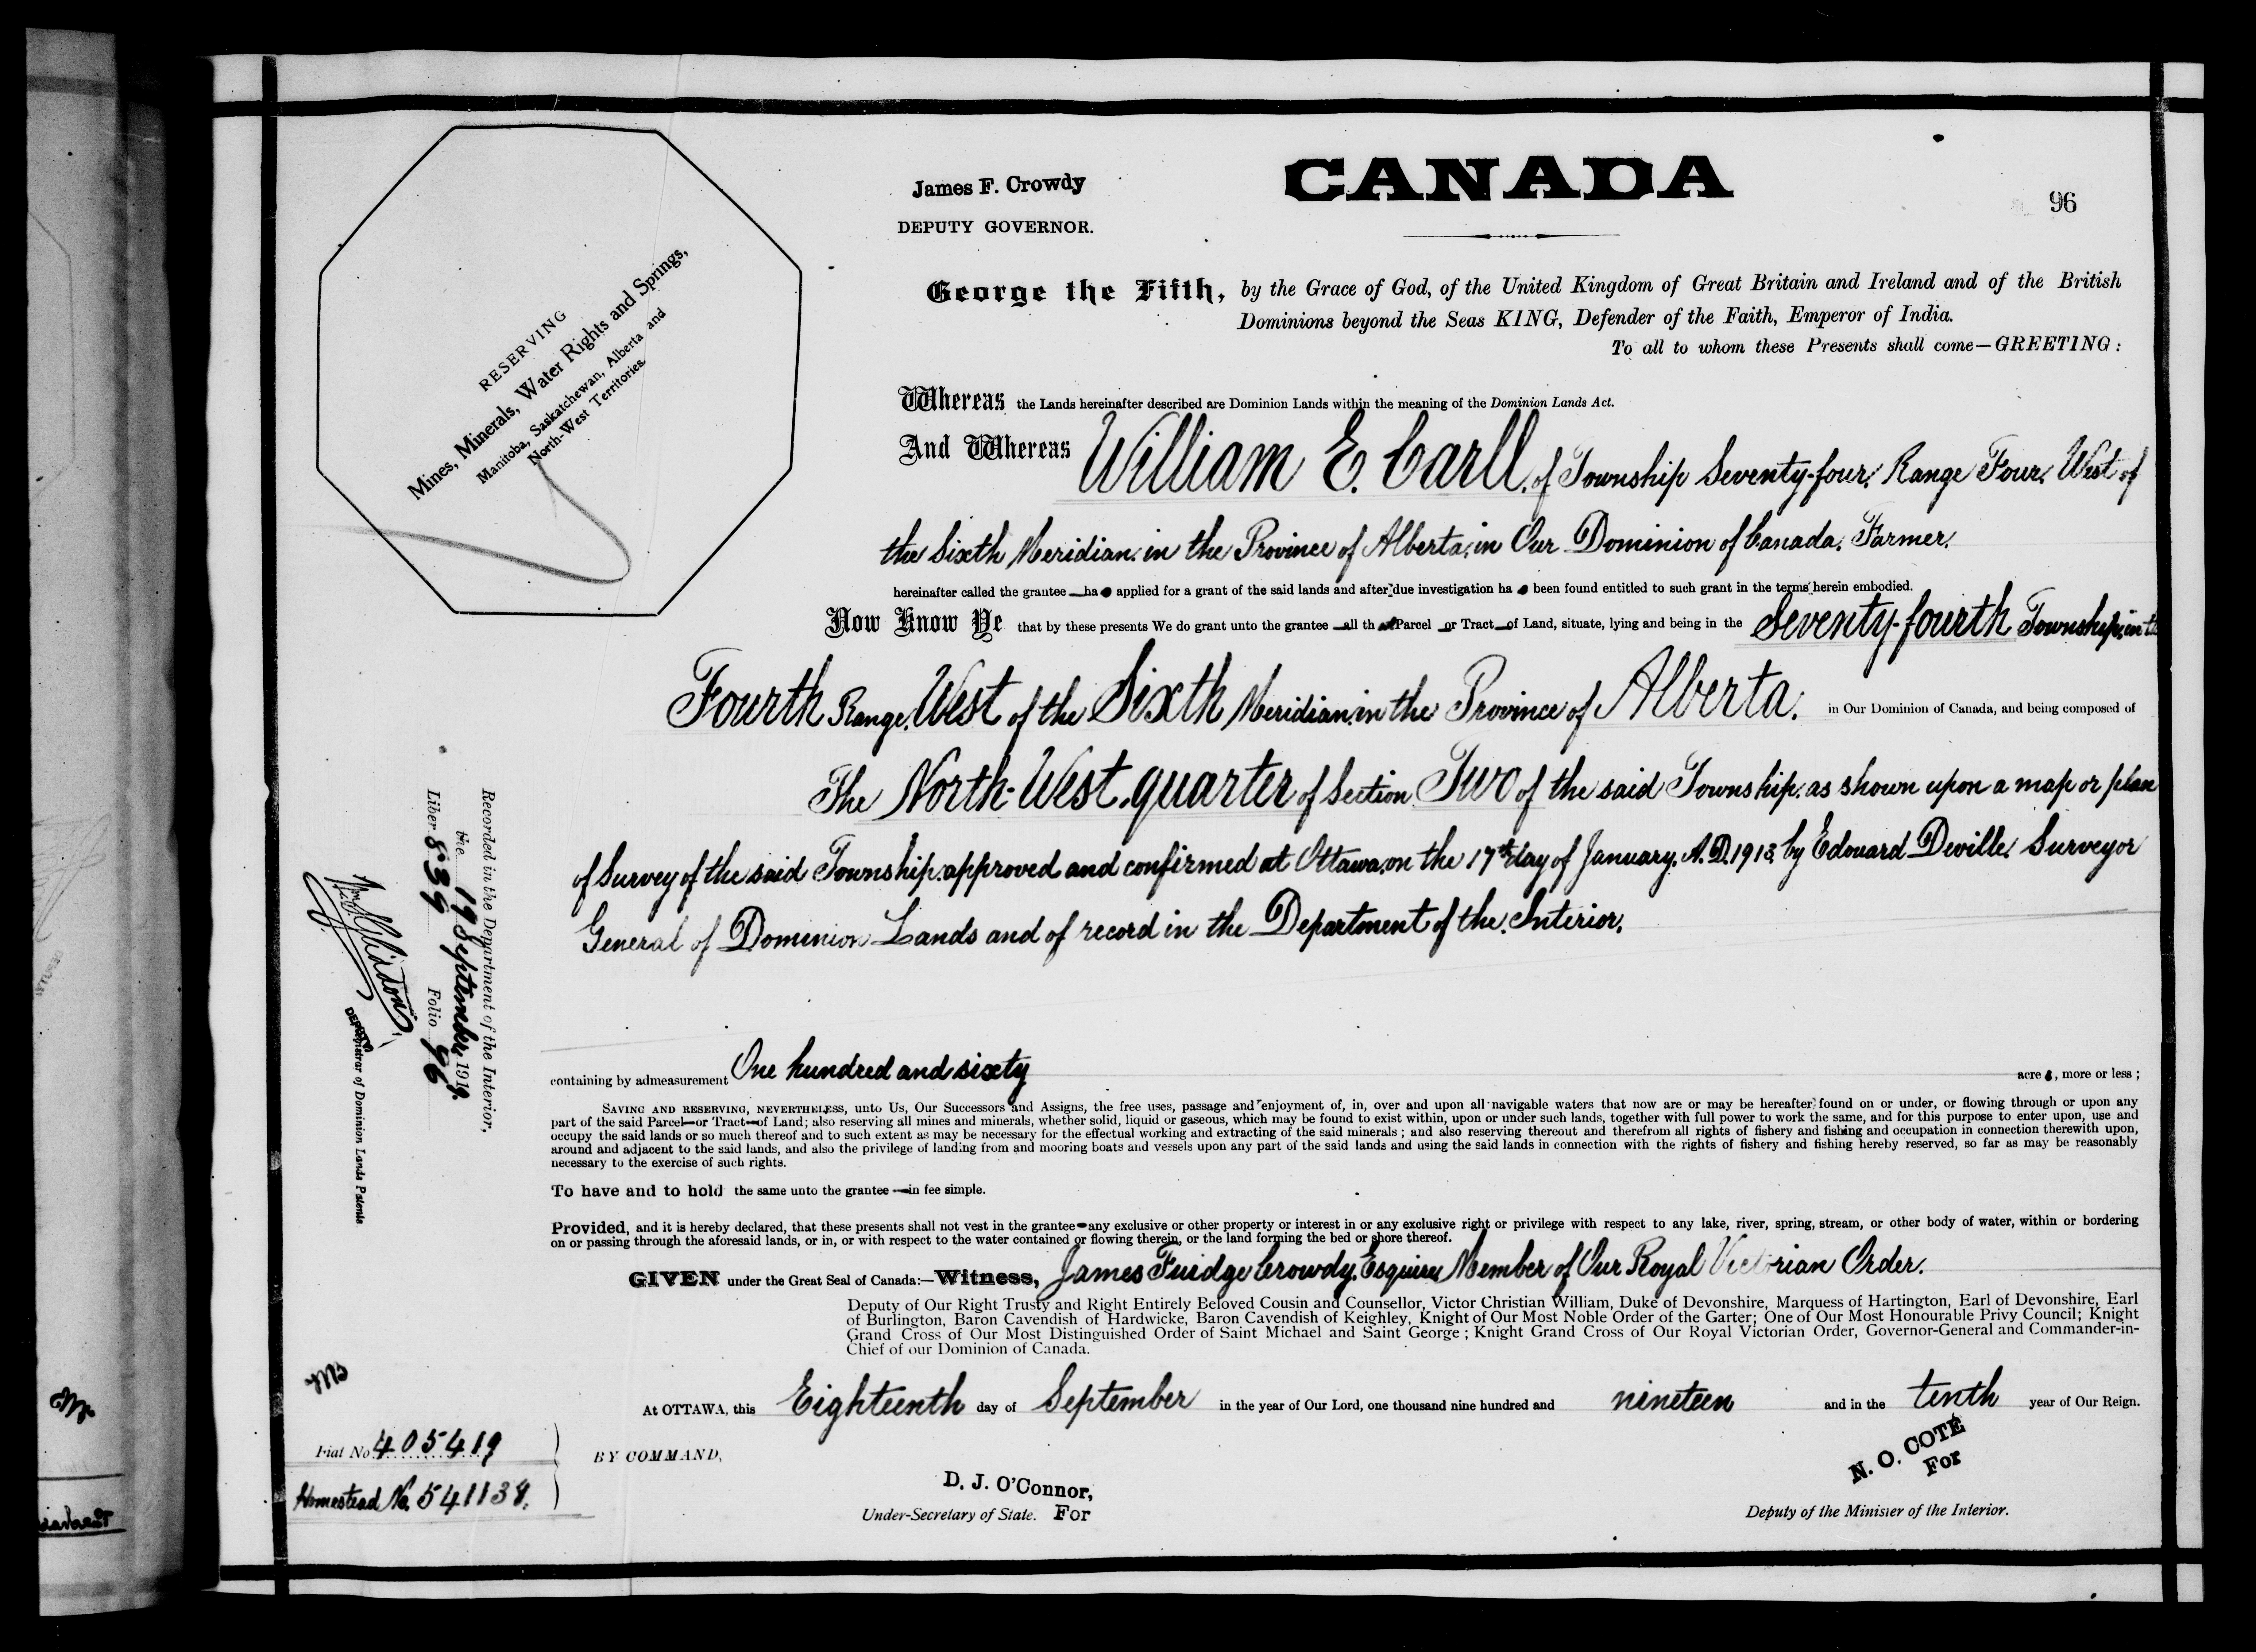 CANADA
James F. Crowdy
DEPUTY GOVERNOR.
96
RESERVING
Mines, Minerals, Water Rights and Springs,
Manitoba, Saskatchewan, Alberta and
North-West Territories.
George the Fifth, by the Grace of God, of the United Kingdom of Great Britain and Ireland and of the British
Dominions beyond the Seas KING, Defender of the Faith, Emperor of India.
To all to whom these Presents shall come—GREETING:
Whereas the Lands hereinafter described are Dominion Lands within the meaning of the Dominion Lands Act.
And Whereas William E. Carll, of Township Seventy-four, Range Four, West of
the Sixth Meridian, in the Province of Alberta, in Our Dominion of Canada, Farmer,
hereinafter called the grantee ha applied for a grant of the said lands and after due investigation ha been found entitled to such grant in the terms herein embodied.
Now Know Ye that by these presents We do grant unto the grantee all th Parcel or Tract of Land, situate, lying and being in the Seventy-fourth Township, in the
Fourth Range, West of the Sixth Meridian, in the Province of Alberta, in Our Dominion of Canada, and being composed of
The North-West quarter of Section Two of the said Township, as shown upon a map or plan
of Survey of the said Township, approved and confirmed at Ottawa, on the 17th day of January, A.D. 1913, by Edouard Deville, Surveyor
General of Dominion Lands and of record in the Department of the Interior,
containing by admeasurement One hundred and sixty acres, more or less;
SAVING AND RESERVING, NEVERTHELESS, unto Us, Our Successors and Assigns, the free uses, passage and enjoyment of, in, over and upon all navigable waters that now are or may be hereafter found on or under, or flowing through or upon any
part of the said Parcel or Tract of Land; also reserving all mines and minerals, whether solid, liquid or gaseous, which may be found to exist within, upon or under such lands, together with full power to work the same, and for this purpose to enter upon, use and
occupy the said lands or so much thereof and to such extent as may be necessary for the effectual working and extracting of the said minerals; and also reserving thereout and therefrom all rights of fishery and fishing and occupation in connection therewith upon,
around and adjacent to the said lands, and also the privilege of landing from and mooring boats and vessels upon any part of the said lands and using the said lands in connection with the rights of fishery and fishing hereby reserved, so far as may be reasonably
necessary to the exercise of such rights.
To have and to hold the same unto the grantee in fee simple.
Provided, and it is hereby declared, that these presents shall not vest in the grantee any exclusive or other property or interest in or any exclusive right or privilege with respect to any lake, river, spring, stream, or other body of water, within or bordering
on or passing through the aforesaid lands, or in, or with respect to the water contained or flowing therein, or the land forming the bed or shore thereof.
GIVEN under the Great Seal of Canada:—Witness, James Fuidge Crowdy, Esquire, Member of Our Royal Victorian Order,
Deputy of Our Right Trusty and Right Entirely Beloved Cousin and Counsellor, Victor Christian William, Duke of Devonshire, Marquess of Hartington, Earl of Devonshire, Earl
of Burlington, Baron Cavendish of Hardwicke, Baron Cavendish of Keighley, Knight of Our Most Noble Order of the Garter; One of Our Most Honourable Privy Council; Knight
Grand Cross of Our Most Distinguished Order of Saint Michael and Saint George; Knight Grand Cross of Our Royal Victorian Order, Governor-General and Commander-in-
Chief of our Dominion of Canada.
At OTTAWA, this Eighteenth day of September in the year of Our Lord, one thousand nine hundred and nineteen and in the tenth year of Our Reign.
BY COMMAND,
D. J. O'Connor,
Under-Secretary of State. For
N. O. COTÉ
For
Deputy of the Minister of the Interior.
Fiat No 405419
Homestead No. 541138.
Recorded in the Department of the Interior,
the 19 September, 1919.
Liber 839 Folio 96
DEPUTY
Registrar of Dominion Lands Patents